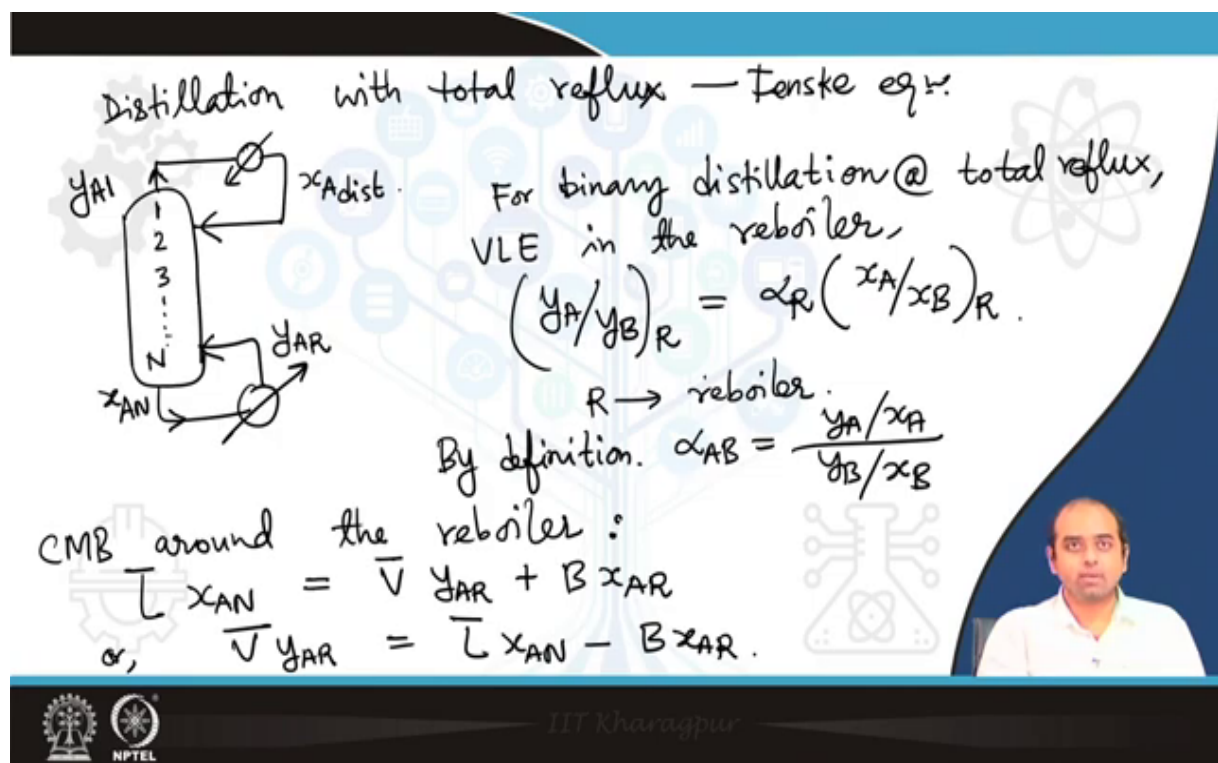 Distillation with total reflux — Fenske eqn.
yA1
xAdist.
1
2
3
N
yAR
xAN
For binary distillation @ total reflux,
VLE in the reboiler,
(yA/yB)R = αR (xA/xB)R.
R → reboiler.
By definition. αAB = (yA/xA)/(yB/xB)
CMB around the reboiler :
L̅ xAN = V̅ yAR + B xAR
or, V̅ yAR = L̅ xAN − B xAR.
IIT Kharagpur
NPTEL